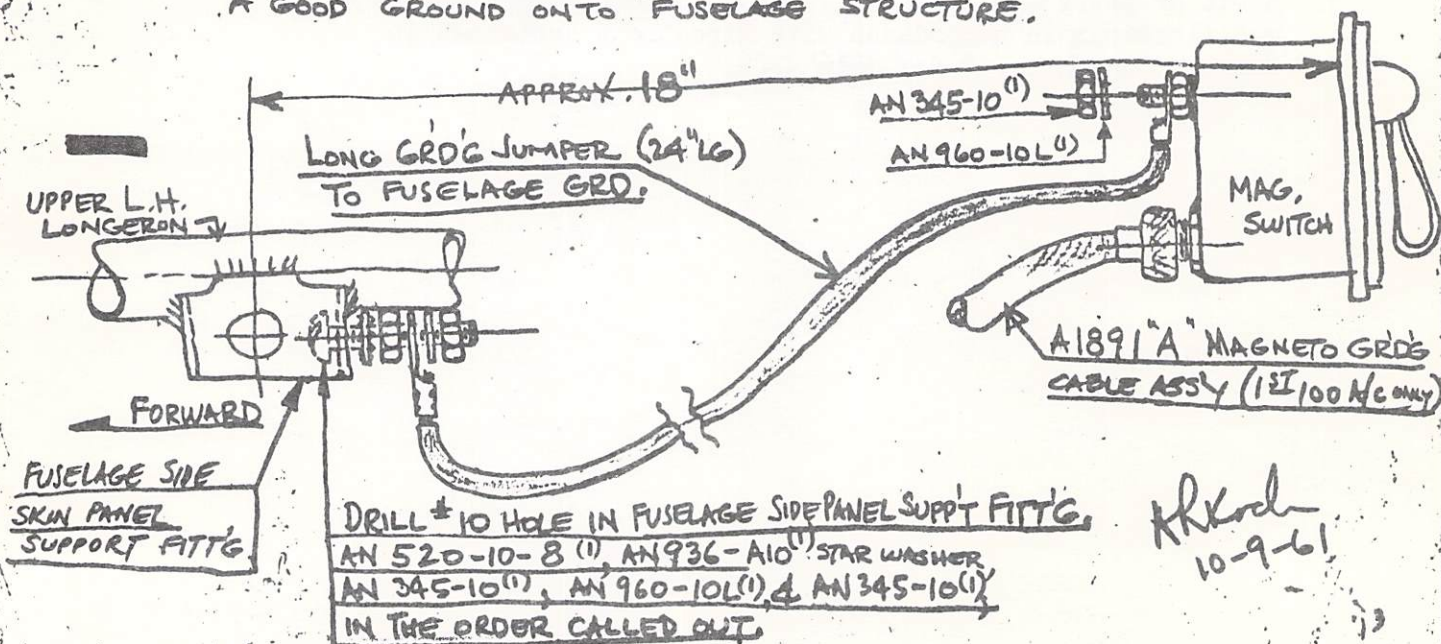 A GOOD GROUND ONTO FUSELAGE STRUCTURE.
APPROX. 18"
AN 345-10(1)
AN 960-10L(1)
LONG GRD'G JUMPER (24"LG)
TO FUSELAGE GRD.
MAG.
SWITCH
UPPER L.H.
LONGERON
A1891"A" MAGNETO GRD'G
CABLE ASS'Y (1ST 100 A/C ONLY)
FORWARD
FUSELAGE SIDE
SKIN PANEL
SUPPORT FITT'G
DRILL #10 HOLE IN FUSELAGE SIDE PANEL SUPP'T FITT'G.
AN 520-10-8(1), AN936-A10(1) STAR WASHER,
AN 345-10(1), AN 960-10L(1), & AN 345-10(1),
IN THE ORDER CALLED OUT.
10-9-61